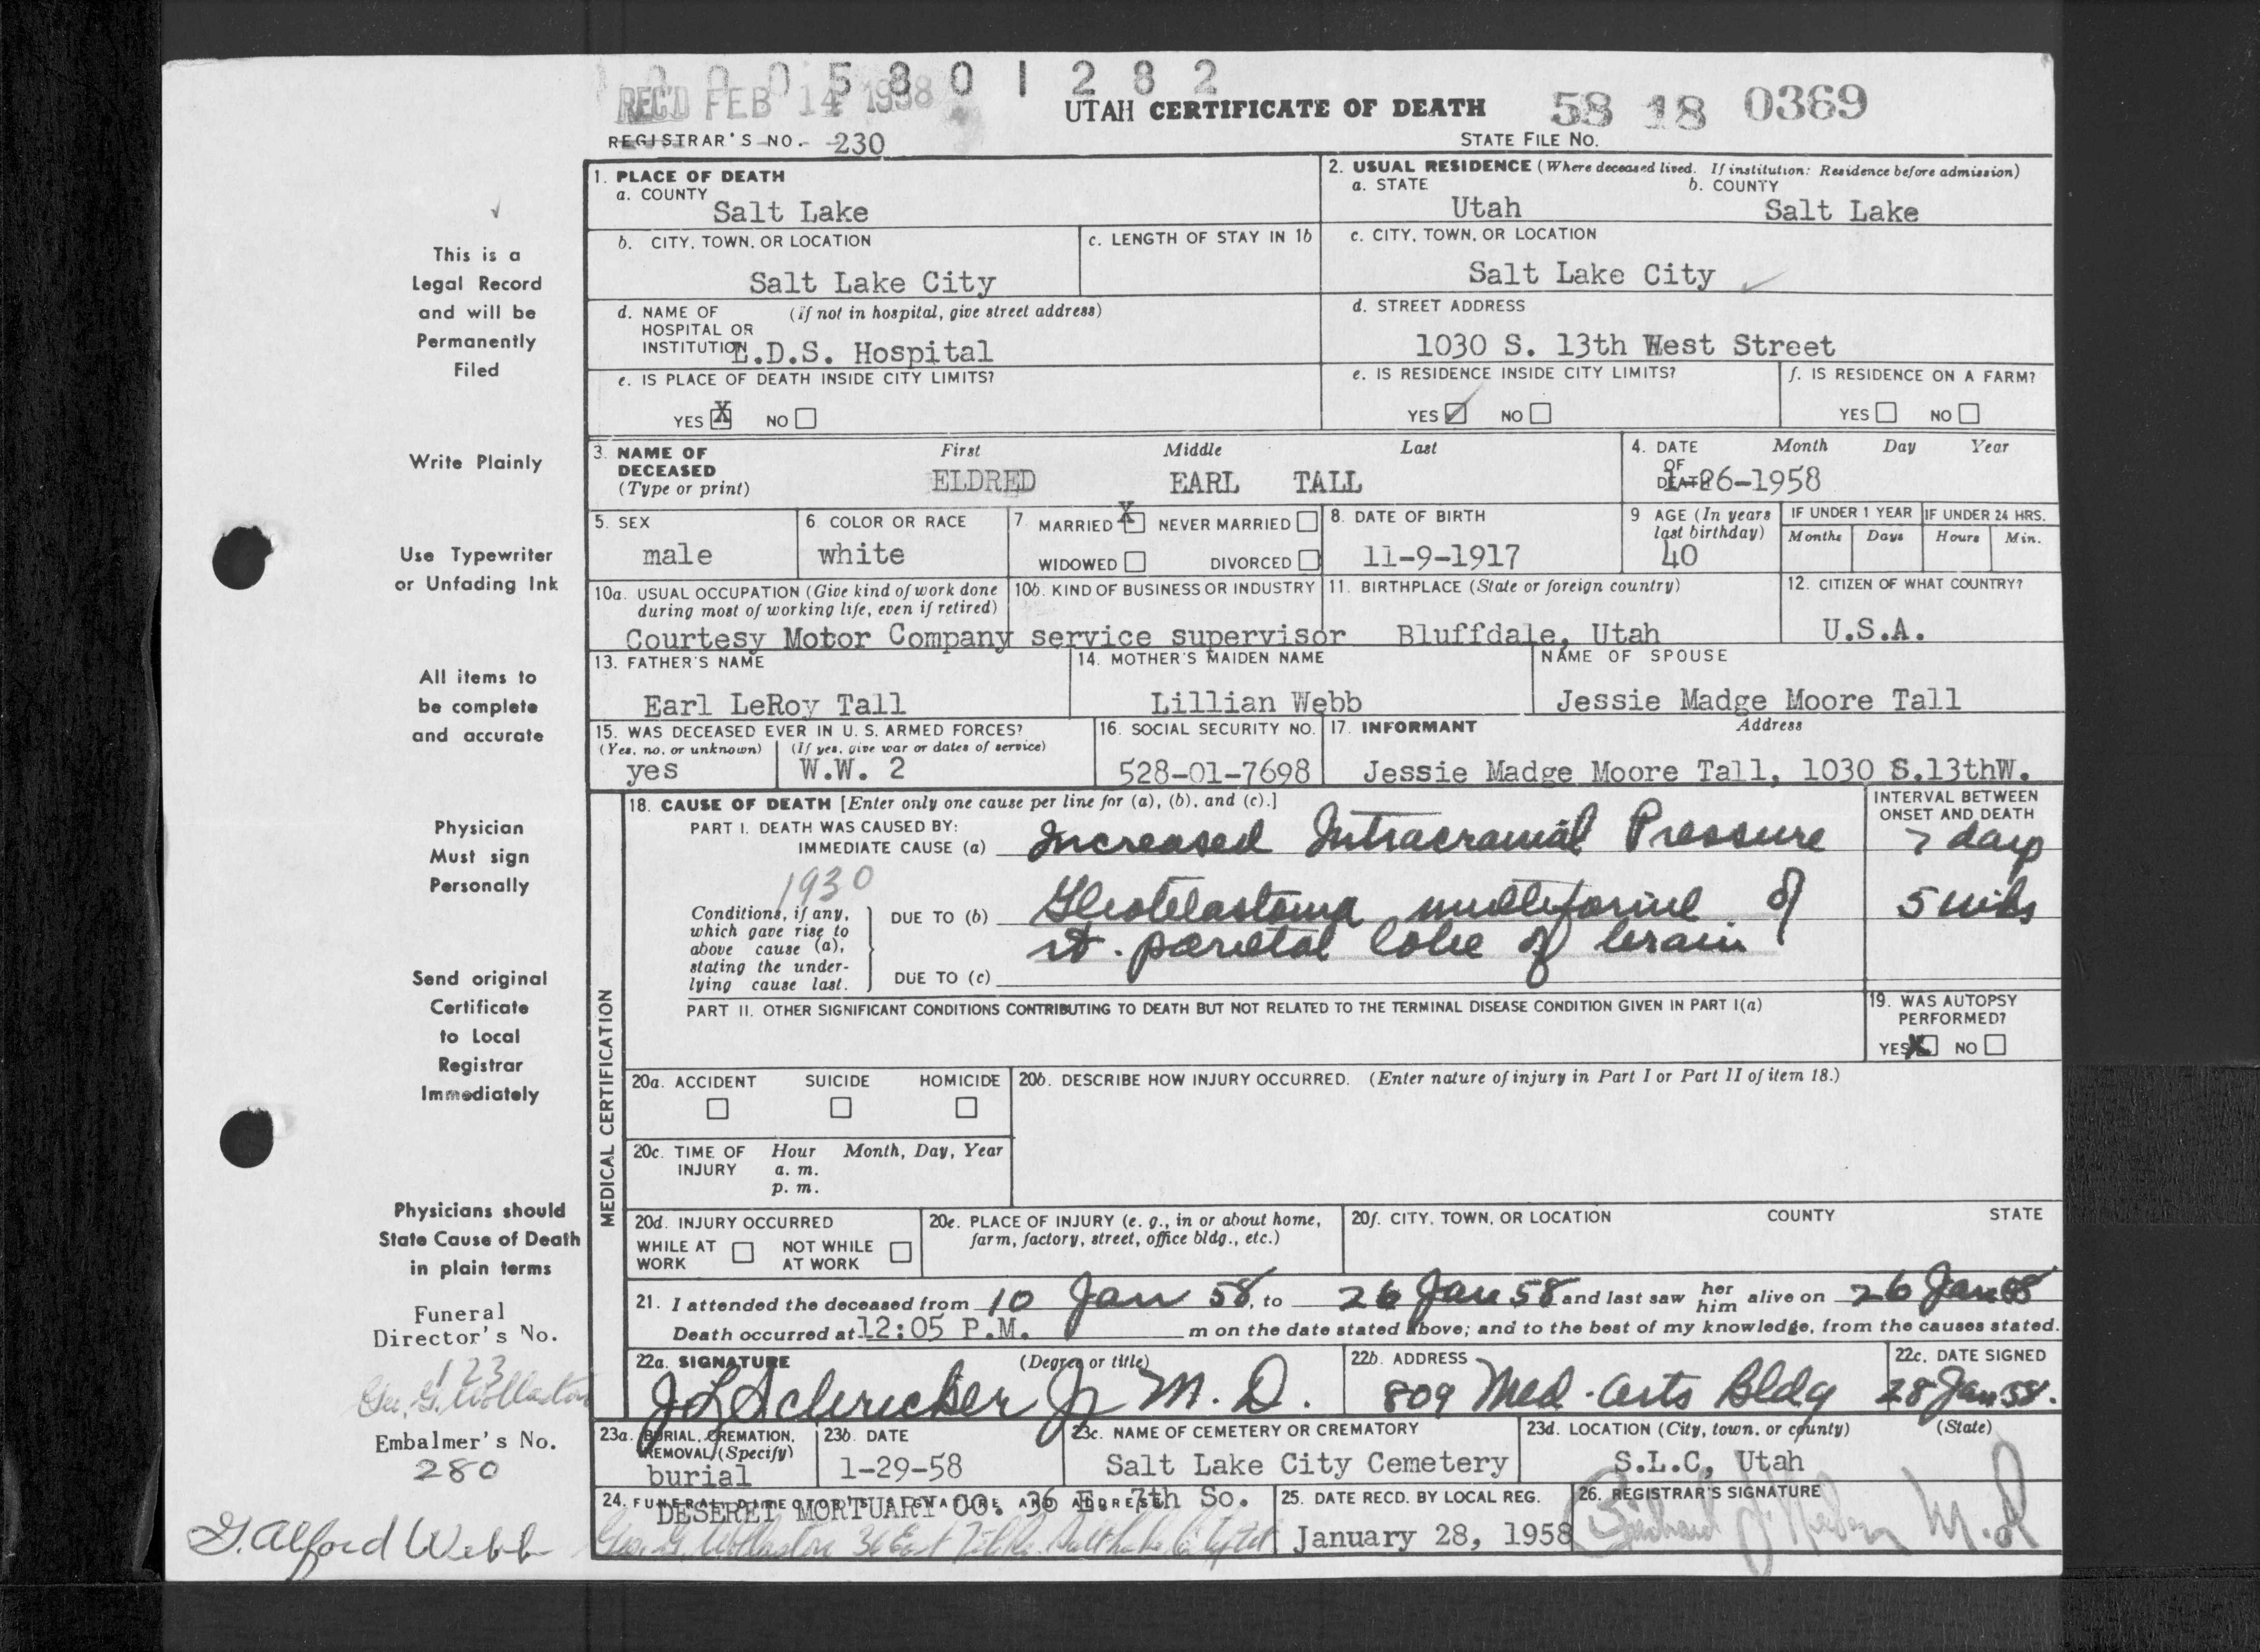 0 0 0 5 8 0 1 2 8 2
REC'D FEB 14 1958
UTAH CERTIFICATE OF DEATH
58 18 0369
REGISTRAR'S NO. 230
STATE FILE NO.
This is a
Legal Record
and will be
Permanently
Filed
Write Plainly
Use Typewriter
or Unfading Ink
All items to
be complete
and accurate
Physician
Must sign
Personally
Send original
Certificate
to Local
Registrar
Immediately
Physicians should
State Cause of Death
in plain terms
Funeral
Director's No.
123
Geo. G. Wollaston
Embalmer's No.
280
G. Alford Webb
1. PLACE OF DEATH
a. COUNTY
Salt Lake
2. USUAL RESIDENCE (Where deceased lived. If institution: Residence before admission)
a. STATE
Utah
b. COUNTY
Salt Lake
b. CITY, TOWN, OR LOCATION
Salt Lake City
c. LENGTH OF STAY IN 1b
c. CITY, TOWN, OR LOCATION
Salt Lake City
d. NAME OF (if not in hospital, give street address)
HOSPITAL OR
INSTITUTION L.D.S. Hospital
d. STREET ADDRESS
1030 S. 13th West Street
e. IS PLACE OF DEATH INSIDE CITY LIMITS?
YES X NO
e. IS RESIDENCE INSIDE CITY LIMITS?
YES ✓ NO
f. IS RESIDENCE ON A FARM?
YES NO
3. NAME OF
DECEASED
(Type or print)
First Middle Last
ELDRED EARL TALL
4. DATE
OF
DEATH
Month Day Year
1-26-1958
5. SEX
male
6. COLOR OR RACE
white
7. MARRIED X NEVER MARRIED
WIDOWED DIVORCED
8. DATE OF BIRTH
11-9-1917
9 AGE (In years
last birthday)
40
IF UNDER 1 YEAR
Months Days
IF UNDER 24 HRS.
Hours Min.
10a. USUAL OCCUPATION (Give kind of work done
during most of working life, even if retired)
10b. KIND OF BUSINESS OR INDUSTRY
Courtesy Motor Company service supervisor
11. BIRTHPLACE (State or foreign country)
Bluffdale, Utah
12. CITIZEN OF WHAT COUNTRY?
U.S.A.
13. FATHER'S NAME
Earl LeRoy Tall
14. MOTHER'S MAIDEN NAME
Lillian Webb
NAME OF SPOUSE
Jessie Madge Moore Tall
15. WAS DECEASED EVER IN U. S. ARMED FORCES?
(Yes, no, or unknown) (If yes, give war or dates of service)
yes W.W. 2
16. SOCIAL SECURITY NO.
528-01-7698
17. INFORMANT Address
Jessie Madge Moore Tall, 1030 S.13thW.
MEDICAL CERTIFICATION
18. CAUSE OF DEATH [Enter only one cause per line for (a), (b), and (c).]
INTERVAL BETWEEN
ONSET AND DEATH
PART I. DEATH WAS CAUSED BY:
IMMEDIATE CAUSE (a) Increased Intracranial Pressure
7 days
1930
Conditions, if any,
which gave rise to
above cause (a),
stating the under-
lying cause last.
DUE TO (b) Glioblastoma multiforme of
rt. parietal lobe of brain
5 wks
DUE TO (c)
PART II. OTHER SIGNIFICANT CONDITIONS CONTRIBUTING TO DEATH BUT NOT RELATED TO THE TERMINAL DISEASE CONDITION GIVEN IN PART I(a)
19. WAS AUTOPSY
PERFORMED?
YES X NO
20a. ACCIDENT SUICIDE HOMICIDE
20b. DESCRIBE HOW INJURY OCCURRED. (Enter nature of injury in Part I or Part II of item 18.)
20c. TIME OF Hour Month, Day, Year
INJURY a. m.
p. m.
20d. INJURY OCCURRED
WHILE AT NOT WHILE
WORK AT WORK
20e. PLACE OF INJURY (e. g., in or about home,
farm, factory, street, office bldg., etc.)
20f. CITY, TOWN, OR LOCATION COUNTY STATE
21. I attended the deceased from 10 Jan 58, to 26 Jan 58 and last saw her him alive on 26 Jan 58
Death occurred at 12:05 P.M. m on the date stated above; and to the best of my knowledge, from the causes stated.
22a. SIGNATURE (Degree or title)
J L Schricker Jr M. D.
22b. ADDRESS
809 Med. Arts Bldg
22c. DATE SIGNED
28 Jan 58.
23a. BURIAL, CREMATION,
REMOVAL (Specify)
burial
23b. DATE
1-29-58
23c. NAME OF CEMETERY OR CREMATORY
Salt Lake City Cemetery
23d. LOCATION (City, town, or county) (State)
S.L.C, Utah
24. FUNERAL DIRECTOR'S SIGNATURE AND ADDRESS
DESERET MORTUARY CO. 36 E. 7th So.
Geo. G. Wollaston 36 East 7th So. Salt Lake City Ut
25. DATE RECD. BY LOCAL REG.
January 28, 1958
26. REGISTRAR'S SIGNATURE
M.D